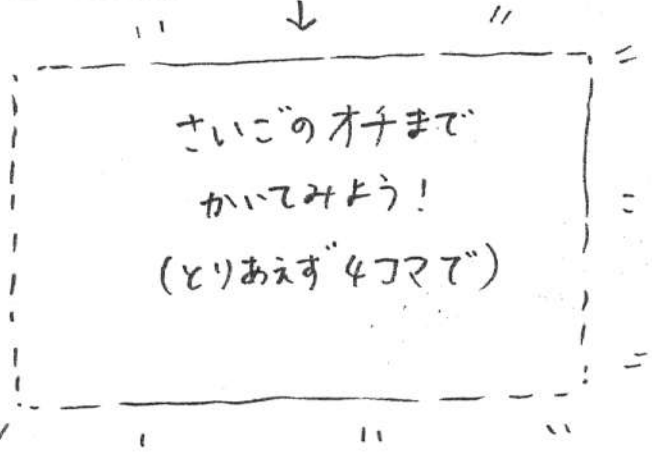 さいごのオチまで
かいてみよう!
(とりあえず4コマで)